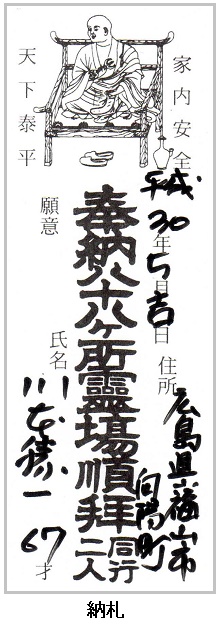 家内安全
天下泰平
平成30年5月吉日
住所 広島県福山市
向陽町
奉納八十八ヶ所霊場順拝
同行二人
願意
氏名
川本祿一
67才
納札